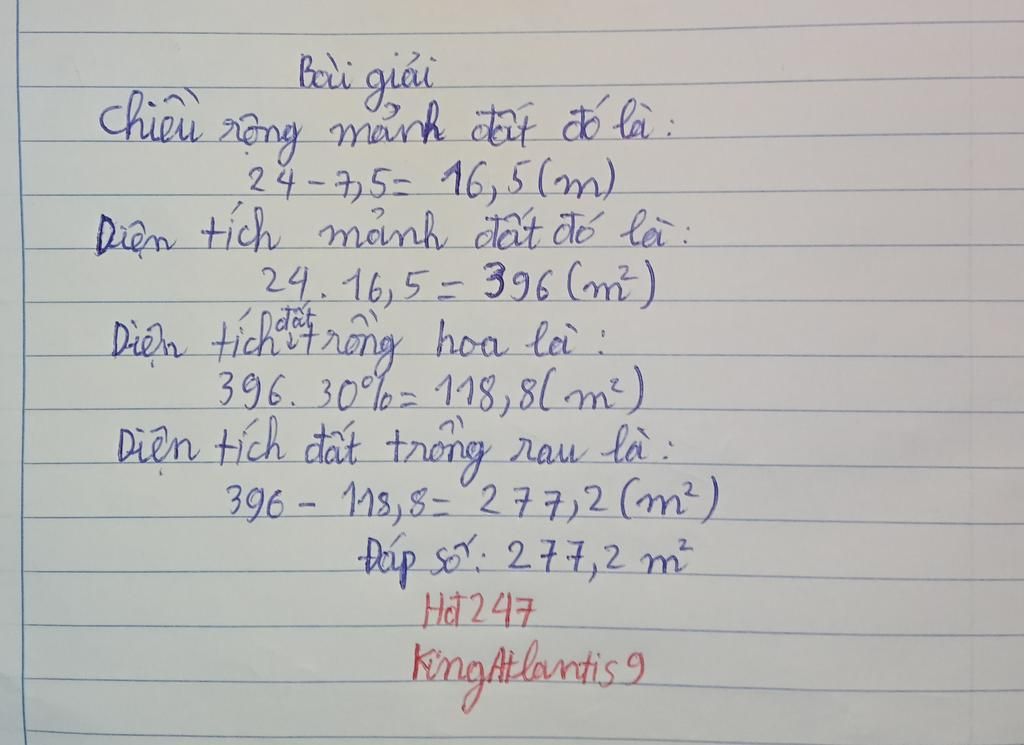 Bài giải
Chiều rộng mảnh đất đó là:
24 - 7,5 = 16,5 (m)
Diện tích mảnh đất đó là:
24 . 16,5 = 396 (m²)
Diện tích đất trồng hoa là:
396 . 30% = 118,8 (m²)
Diện tích đất trồng rau là:
396 - 118,8 = 277,2 (m²)
Đáp số: 277,2 m²
Hđ247
KingAtlantis9